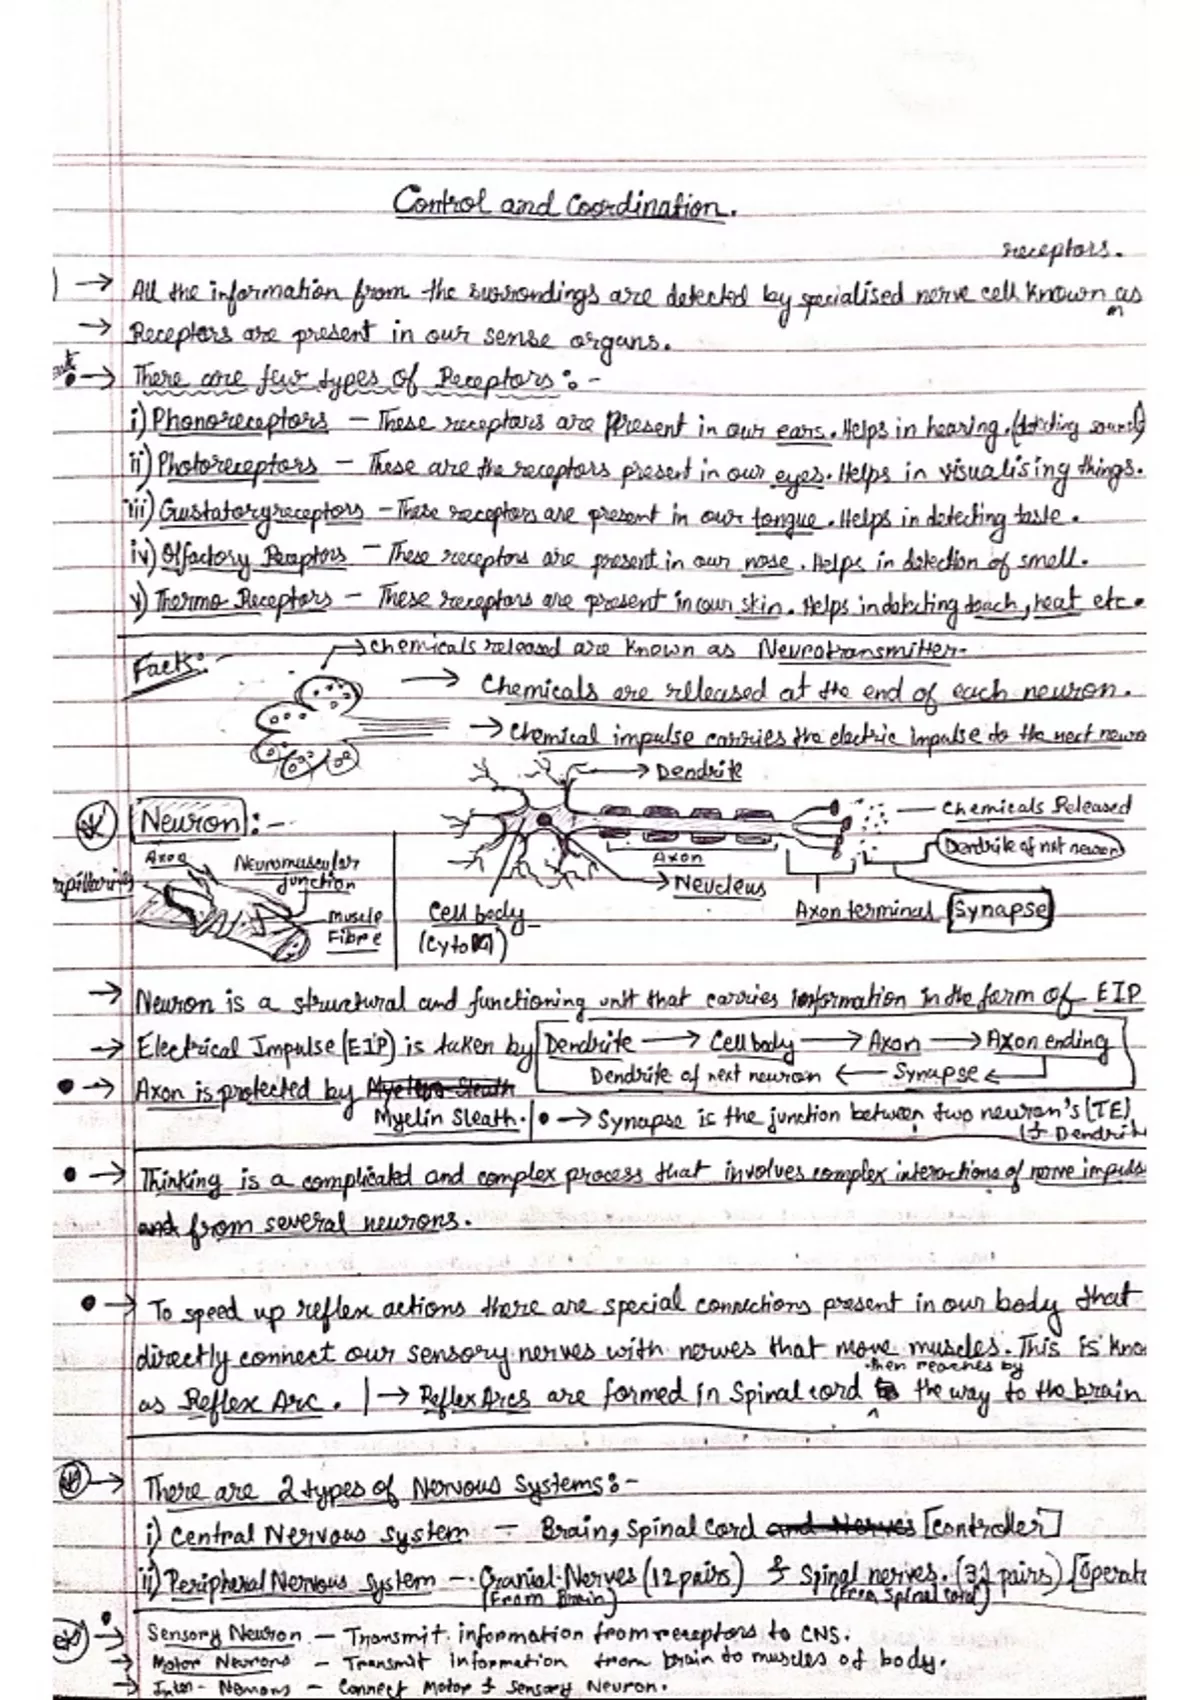 Control and Coordination.
receptors.
→ All the information from the surrondings are detected by specialised nerve cell known as
→ Receptors are present in our sense organs.
→ There are few types of Receptors :-
i) Phonoreceptors - These receptors are Present in our ears. Helps in hearing. (detecting sound)
ii) Photoreceptors - These are the receptors present in our eyes. Helps in visualising things.
iii) Gustatoryreceptors - These receptors are present in our tongue. Helps in detecting taste.
iv) Olfactory Receptors - These receptors are present in our nose. Helps in detection of smell.
v) Thermo Receptors - These receptors are present in our skin. Helps in detecting touch, heat etc.
Facts:- → Chemicals released are known as Neurotransmitter-
→ Chemicals are released at the end of each neuron.
→ Chemical impulse carries the electric impulse to the next neuro
→ Dendrite
Neuron :-
Chemicals Released
Dendrite of nxt neuron
Axon
Neuromuscular junction
Muscle Fibre
Axon
→ Neucleus
Cell body
(Cyto
Axon terminal
Synapse
→ Neuron is a structural and functioning unit that carries information in the form of EIP
→ Electrical Impulse (EIP) is taken by Dendrite → Cell body → Axon → Axon ending
Dendrite of next neuron ← Synapse ←
• → Axon is protected by
Myelin Sleath. • → Synapse is the junction between two neuron's (TE)
& Dendrit
• → Thinking is a complicated and complex process that involves complex interactions of nerve impuls
from several neurons.
• → To speed up reflex actions there are special connections present in our body that
directly connect our sensory nerves with nerves that move muscles. This is kno
then reaches by
as Reflex Arc. → Reflex Arcs are formed in Spinal cord the way to the brain
→ There are 2 types of Nervous Systems:-
i) Central Nervous System - Brain, Spinal Cord and Nerves [Controller]
ii) Peripheral Nervous System - Cranial Nerves (12 pairs) & Spinal nerves. (31 pairs) [Operat
(From Brain) (From Spinal cord)
• → Sensory Neuron - Transmit information from receptors to CNS.
→ Motor Neurons - Transmit information from brain to muscles of body.
→ Inter- Neurons - Connect Motor & Sensory Neuron.